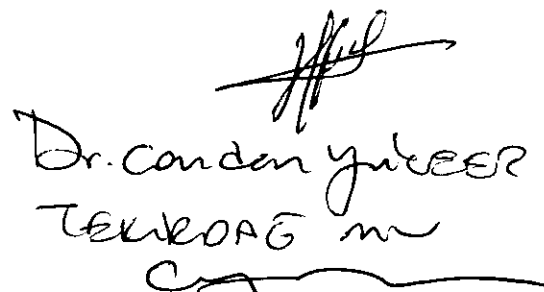 Dr. Candan Yüceer
TEKİRDAĞ mv